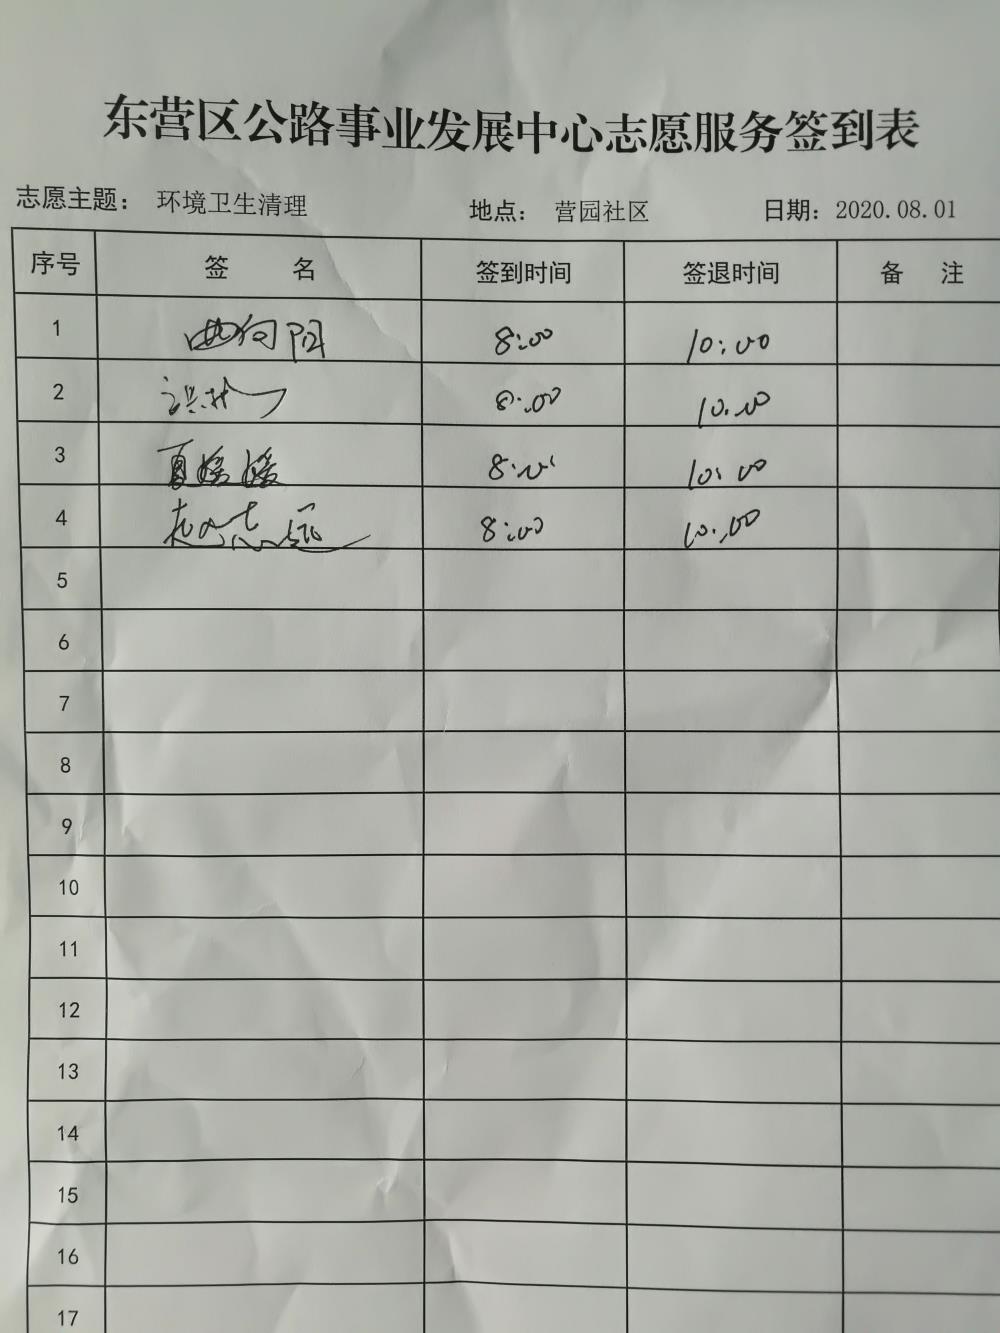 东营区公路事业发展中心志愿服务签到表
志愿主题： 环境卫生清理 地点： 营园社区 日期：2020.08.01
序号 签 名 签到时间 签退时间 备 注
1 曲向阳 8:00 10:00
2 8:00 10:00
3 夏媛媛 8:00 10:00
4 8:00 10:00
5
6
7
8
9
10
11
12
13
14
15
16
17